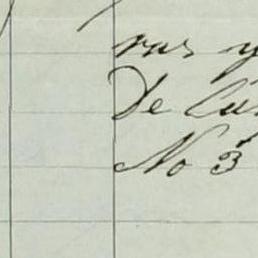 ras y
De Cu
No 3